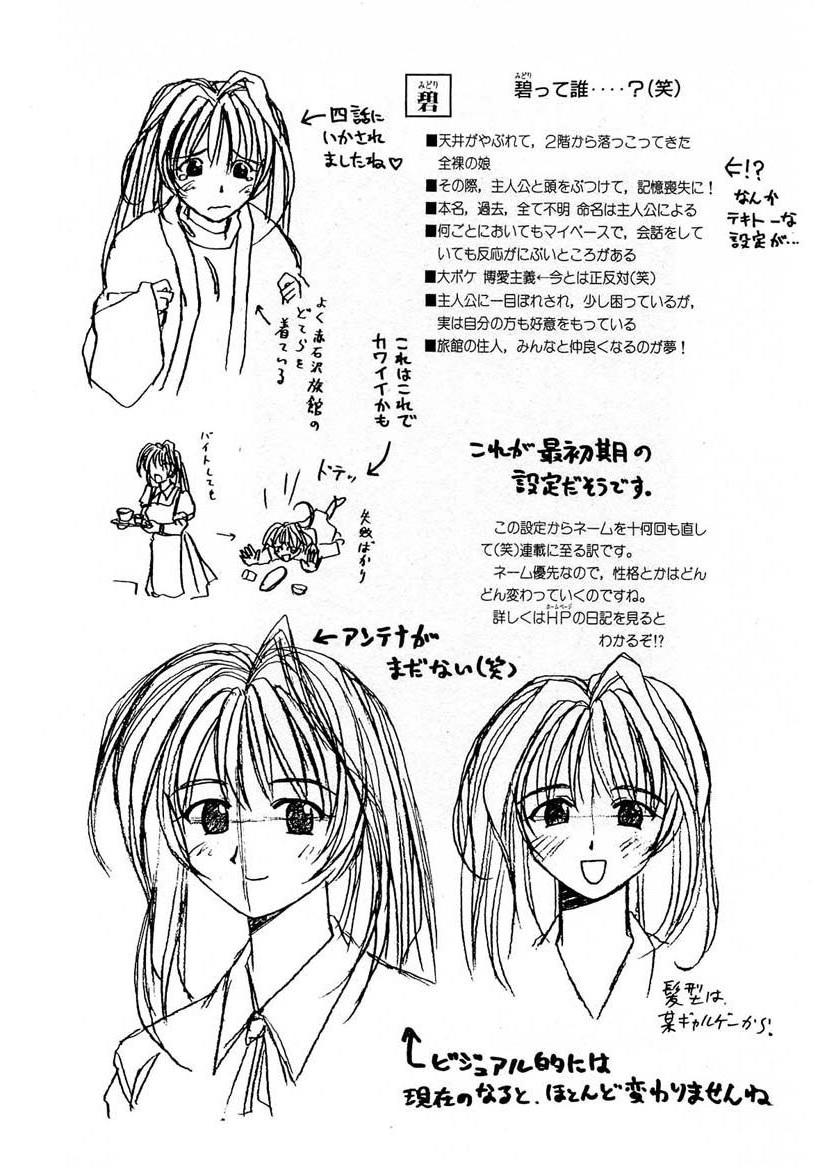 碧
みどり
碧って誰‥‥？(笑)
みどり
←四話に
いかされ
ましたね♡
■天井がやぶれて，２階から落っこってきた
全裸の娘
■その際，主人公と頭をぶつけて，記憶喪失に！
■本名，過去，全て不明 命名は主人公による
■何ごとにおいてもマイペースで，会話をして
いても反応がにぶいところがある
■大ボケ 博愛主義←今とは正反対(笑)
■主人公に一目ぼれされ，少し困っているが，
実は自分の方も好意をもっている
■旅館の住人，みんなと仲良くなるのが夢！
←!?
なんか
テキトーな
設定が…
よく赤石沢旅館の
どてらを
着ている
これはこれで
カワイイかも
バイトしても
ドテッ
失敗ばかり
これが最初期の
設定だそうです。
この設定からネームを十何回も直し
て(笑)連載に至る訳です。
ネーム優先なので，性格とかはどん
どん変わっていくのですね。
詳しくはＨＰの日記を見ると
ホームページ
わかるぞ!?
←アンテナが
まだない(笑)
髪型は、
某ギャルゲーから。
ビジュアル的には
現在のなると、ほとんど変わりませんね